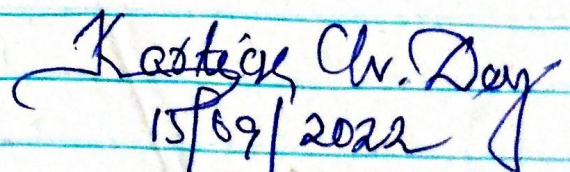 Kartick Ch. Dey
15/09/2022